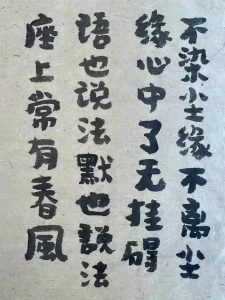 不染尘缘不离尘
缘心中了无挂碍
语也说法默也説法
座上常有春風